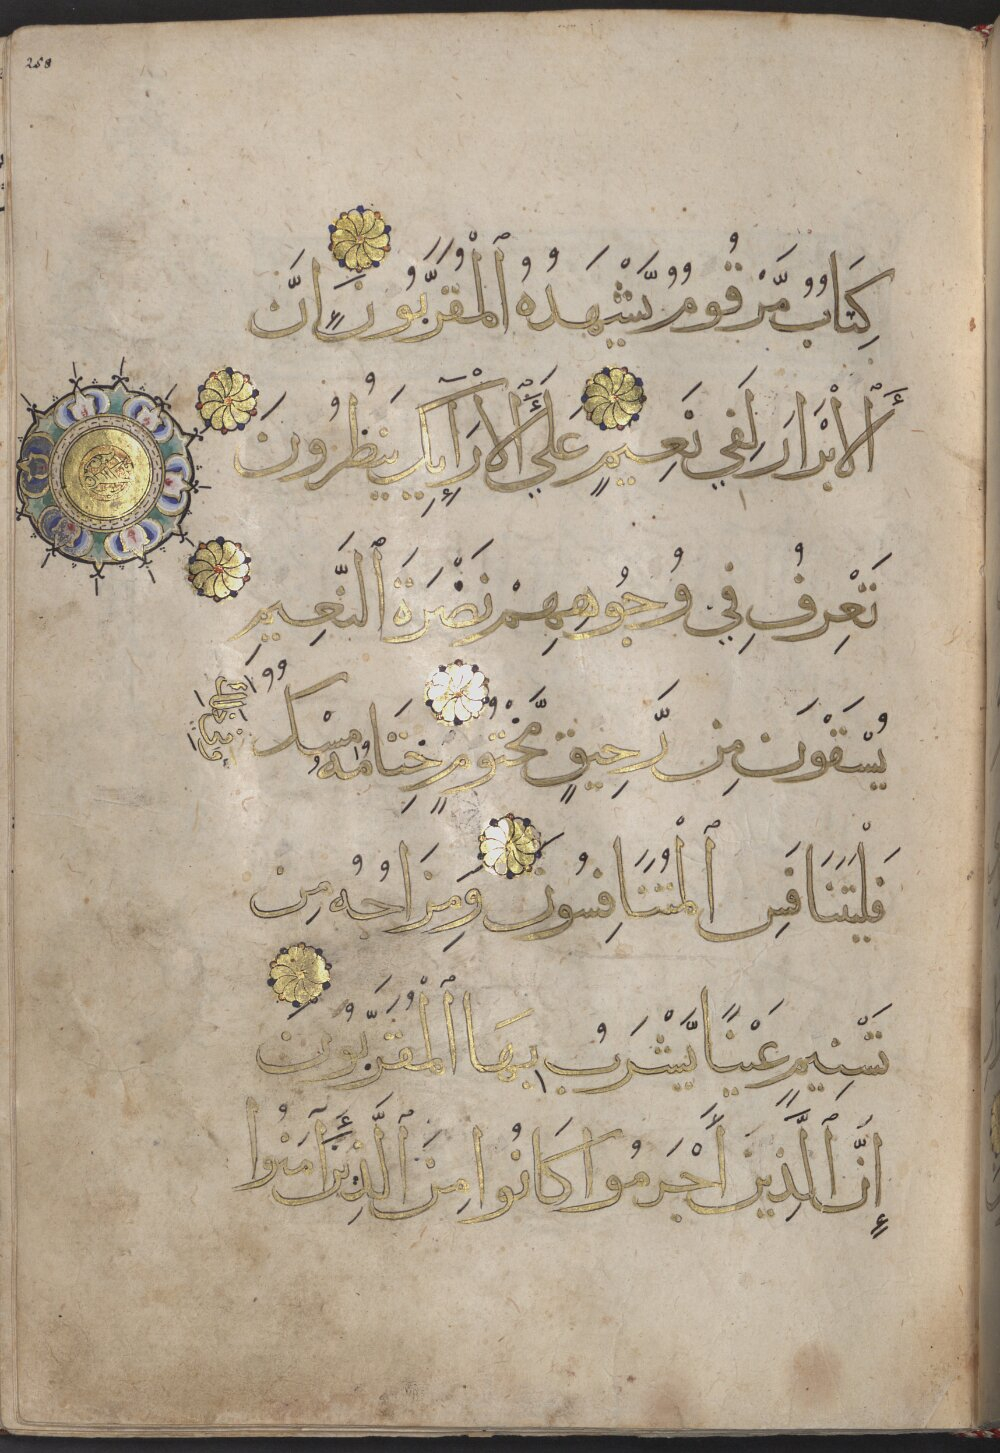 258
كِتَابٌ مَّرْقُومٌ يَّشْهَدُهُ ٱلْمُقَرَّبُونَ إِنَّ
ٱلْأَبْرَارَ لَفِي نَعِيمٍ عَلَي ٱلْأَرَآئِكِ يَنظُرُونَ
تَعْرِفُ فِي وُجُوهِهِمْ نَضْرَةَ ٱلنَّعِيمِ
يُسْقَوْنَ مِن رَّحِيقٍ مَّخْتُومٍ خِتَامُهُ مِسْكٌ وَفِي ذَٰلِكَ
فَلْيَتَنَافَسِ ٱلْمُتَنَافِسُونَ وَمِزَاجُهُ مِن
تَسْنِيمٍ عَيْنًا يَّشْرَبُ بِهَا ٱلْمُقَرَّبُونَ
إِنَّ ٱلَّذِينَ أَجْرَمُوا كَانُوا مِنَ ٱلَّذِينَ آمَنُوا